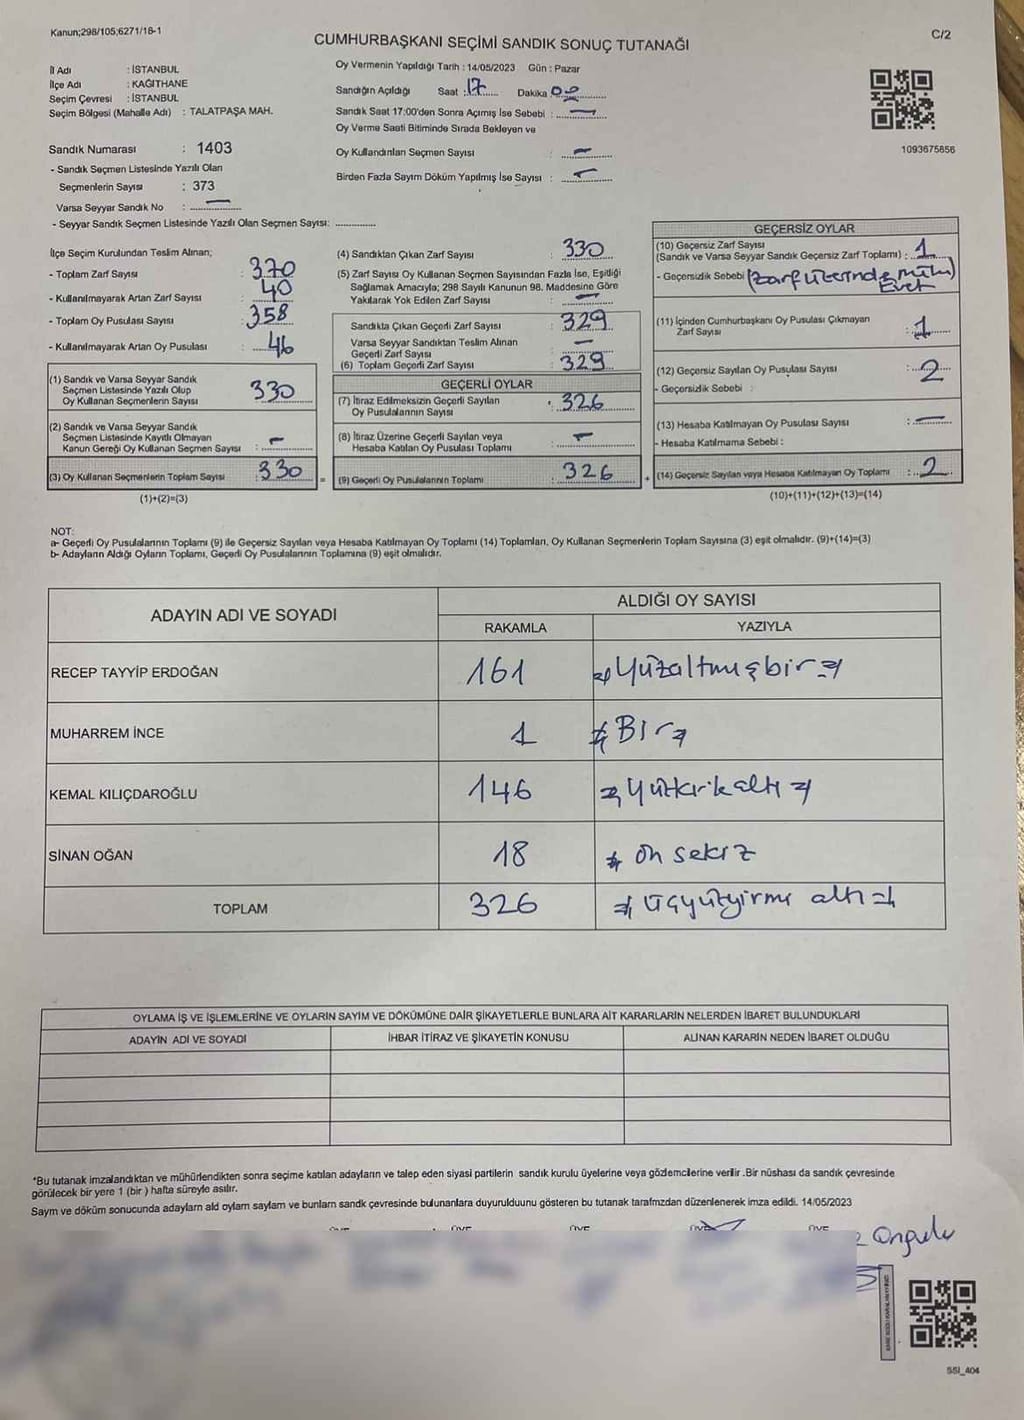 Kanun;298/105;6271/18-1
C/2
CUMHURBAŞKANI SEÇİMİ SANDIK SONUÇ TUTANAĞI
İl Adı : İSTANBUL
İlçe Adı : KAĞITHANE
Seçim Çevresi : İSTANBUL
Seçim Bölgesi (Mahalle Adı) : TALATPAŞA MAH.
Sandık Numarası : 1403
- Sandık Seçmen Listesinde Yazılı Olan
Seçmenlerin Sayısı : 373
Varsa Seyyar Sandık No : —
- Seyyar Sandık Seçmen Listesinde Yazılı Olan Seçmen Sayısı: ..............
Oy Vermenin Yapıldığı Tarih : 14/05/2023 Gün : Pazar
Sandığın Açıldığı Saat : 17 Dakika 00
Sandık Saat 17:00'den Sonra Açımış İse Sebebi : —
Oy Verme Saati Bitiminde Sırada Bekleyen ve
Oy Kullandırılan Seçmen Sayısı : —
Birden Fazla Sayım Döküm Yapılmış İse Sayısı : —
1093675656
İlçe Seçim Kurulundan Teslim Alınan;
- Toplam Zarf Sayısı : 370
- Kullanılmayarak Artan Zarf Sayısı : 40
- Toplam Oy Pusulası Sayısı : 358
- Kullanılmayarak Artan Oy Pusulası : 46
(1) Sandık ve Varsa Seyyar Sandık
Seçmen Listesinde Yazılı Olup
Oy Kullanan Seçmenlerin Sayısı 330
(2) Sandık ve Varsa Seyyar Sandık
Seçmen Listesinde Kayıtlı Olmayan
Kanun Gereği Oy Kullanan Seçmen Sayısı : —
(3) Oy Kullanan Seçmenlerin Toplam Sayısı : 330
(1)+(2)=(3)
(4) Sandıktan Çıkan Zarf Sayısı : 330
(5) Zarf Sayısı Oy Kullanan Seçmen Sayısından Fazla İse, Eşitliği
Sağlamak Amacıyla; 298 Sayılı Kanunun 98. Maddesine Göre
Yakılarak Yok Edilen Zarf Sayısı : —
Sandıkta Çıkan Geçerli Zarf Sayısı : 329
Varsa Seyyar Sandıktan Teslim Alınan
Geçerli Zarf Sayısı : —
(6) Toplam Geçerli Zarf Sayısı : 329
GEÇERLİ OYLAR
(7) İtiraz Edilmeksizin Geçerli Sayılan
Oy Pusulalarının Sayısı : 326
(8) İtiraz Üzerine Geçerli Sayılan veya
Hesaba Katılan Oy Pusulası Toplamı : —
(9) Geçerli Oy Pusulalarının Toplamı : 326
GEÇERSİZ OYLAR
(10) Geçersiz Zarf Sayısı
(Sandık ve Varsa Seyyar Sandık Geçersiz Zarf Toplamı) : 1
- Geçersizlik Sebebi (Zarf üzerinde mühür)
Evet
(11) İçinden Cumhurbaşkanı Oy Pusulası Çıkmayan
Zarf Sayısı : 1
(12) Geçersiz Sayılan Oy Pusulası Sayısı : 2
- Geçersizlik Sebebi :
(13) Hesaba Katılmayan Oy Pusulası Sayısı : —
- Hesaba Katılmama Sebebi :
(14) Geçersiz Sayılan veya Hesaba Katılmayan Oy Toplamı : 2
(10)+(11)+(12)+(13)=(14)
NOT:
a- Geçerli Oy Pusulalarının Toplamı (9) ile Geçersiz Sayılan veya Hesaba Katılmayan Oy Toplamı (14) Toplamları, Oy Kullanan Seçmenlerin Toplam Sayısına (3) eşit olmalıdır. (9)+(14)=(3)
b- Adayların Aldığı Oyların Toplamı, Geçerli Oy Pusulalarının Toplamına (9) eşit olmalıdır.
ADAYIN ADI VE SOYADI ALDIĞI OY SAYISI
RAKAMLA YAZIYLA
RECEP TAYYİP ERDOĞAN 161 Yüzaltmışbir
MUHARREM İNCE 1 Bir
KEMAL KILIÇDAROĞLU 146 Yüzkırkaltı
SİNAN OĞAN 18 on sekiz
TOPLAM 326 üçyüzyirmi altı
OYLAMA İŞ VE İŞLEMLERİNE VE OYLARIN SAYIM VE DÖKÜMÜNE DAİR ŞİKAYETLERLE BUNLARA AİT KARARLARIN NELERDEN İBARET BULUNDUKLARI
ADAYIN ADI VE SOYADI İHBAR İTİRAZ VE ŞİKAYETİN KONUSU ALINAN KARARIN NEDEN İBARET OLDUĞU
*Bu tutanak imzalandıktan ve mühürlendikten sonra seçime katılan adayların ve talep eden siyasi partilerin sandık kurulu üyelerine veya gözlemcilerine verilir .Bir nüshası da sandık çevresinde
görülecek bir yere 1 (bir ) hafta süreyle asılır.
Sayım ve döküm sonucunda adayların ald oylam saylam ve bunlarn sandk çevresinde bulunanlara duyurulduunu gösteren bu tutanak tarafmzdan düzenlenerek imza edildi. 14/05/2023
ÜYE ÜYE ÜYE ÜYE
SSI_404